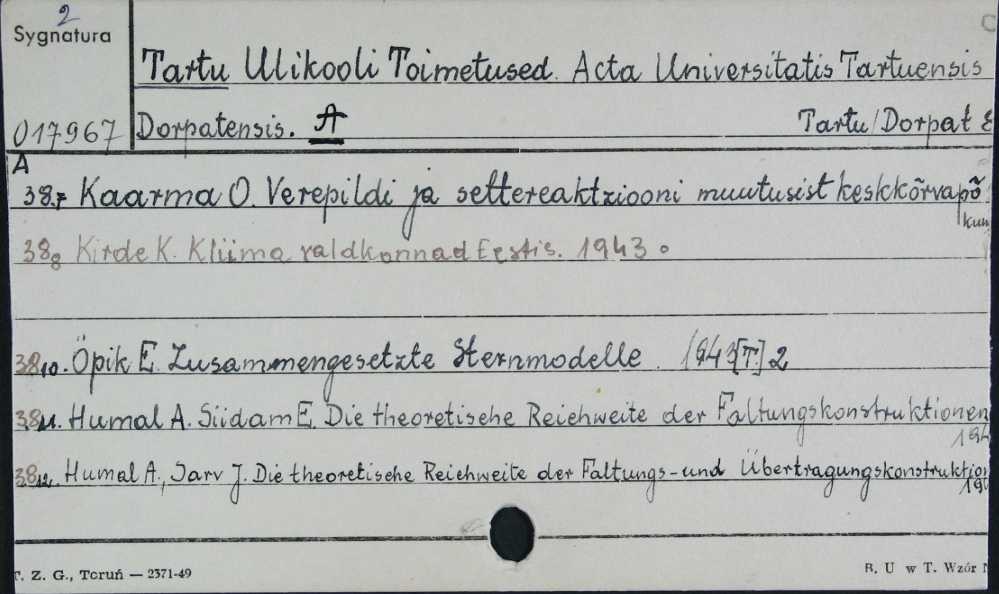 2
Sygnatura
Tartu Ulikooli Toimetused. Acta Universitatis Tartuensis
017967 Dorpatensis. A Tartu/Dorpat
A
38.7 Kaarma O. Verepildi ja settereaktziooni muutusist keskkõrvapõ
kum
38 8 Kirde K. Kliima valdkonnad Eestis. 1943
38 10. Öpik E. Zusammengesetzte Sternmodelle. 1943 [T.] 2
38 11. Humal A. Siidam E. Die theoretische Reichweite der Faltungskonstruktionen
194
38 12. Humal A., Jarv J. Die theoretische Reichweite der Faltungs- und Übertragungskonstruktion
T. Z. G., Toruń — 2371-49 B. U w T. Wzór